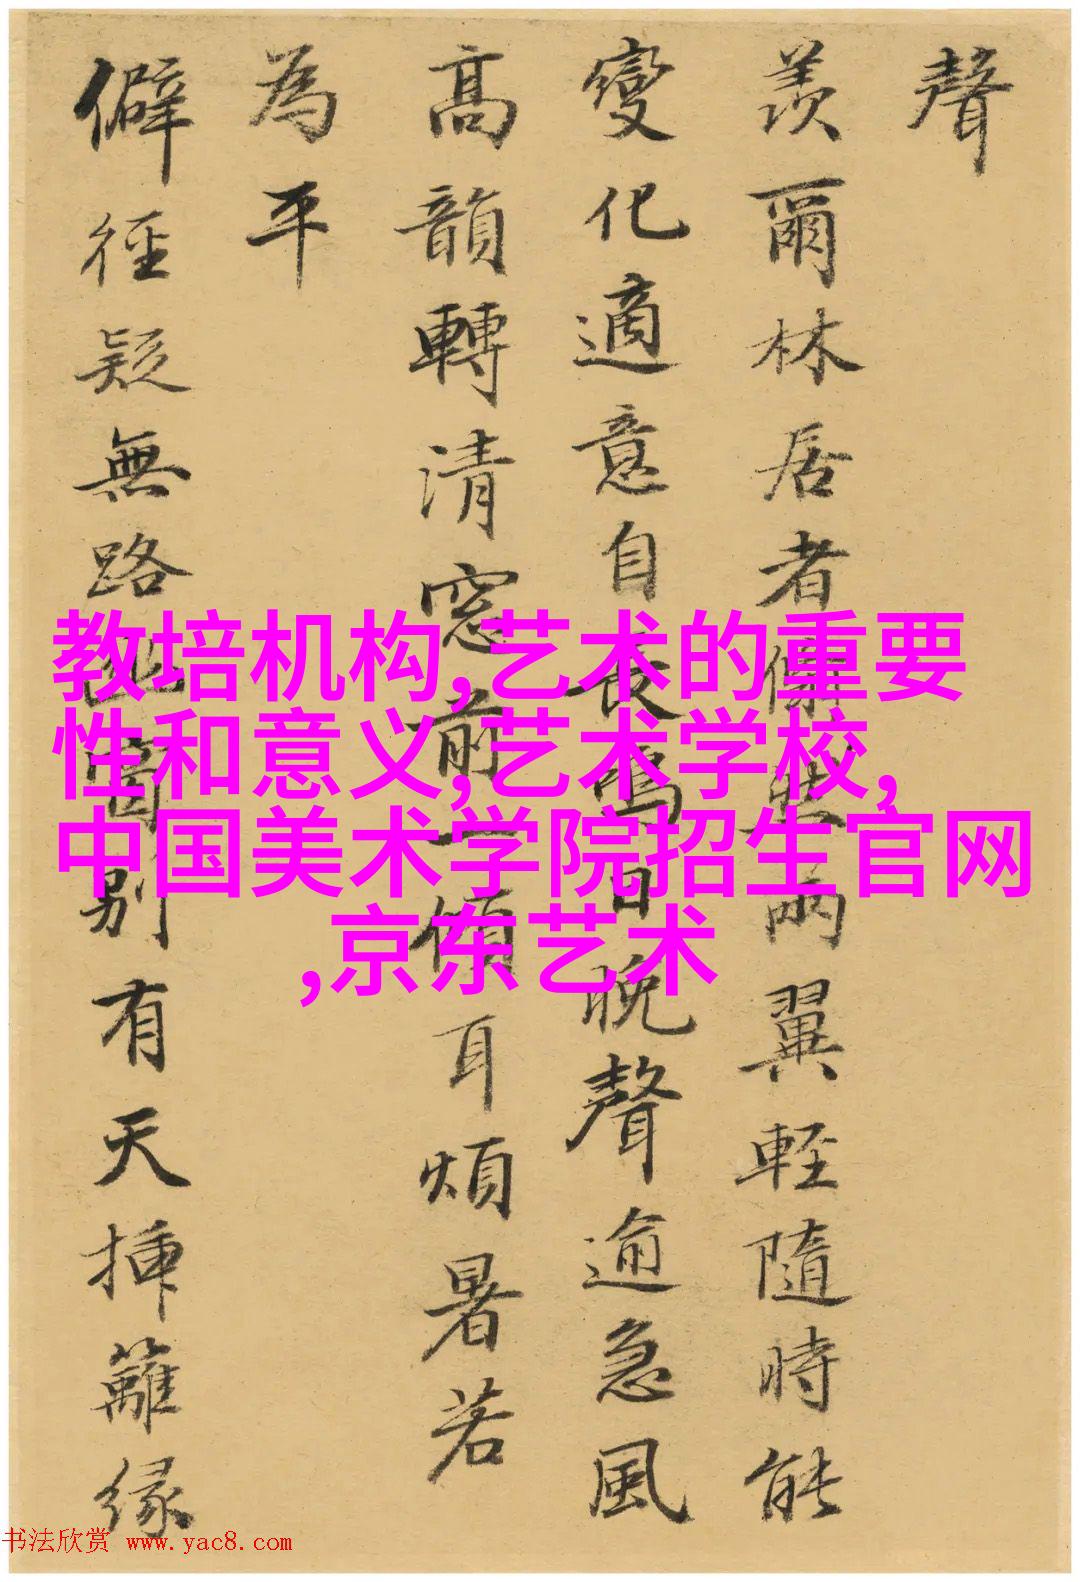 聲
羨爾林居者翛然兩翼輕隨時能
變化適意自長鳴日晚聲逾急風
高韻轉清窓前一傾耳煩暑若
為平
僻徑疑無路幽窗別有天揷籬緣
教培机构,艺术的重要
性和意义,艺术学校,
中国美术学院招生官网
,京东艺术
书法欣赏 www.yac8.com